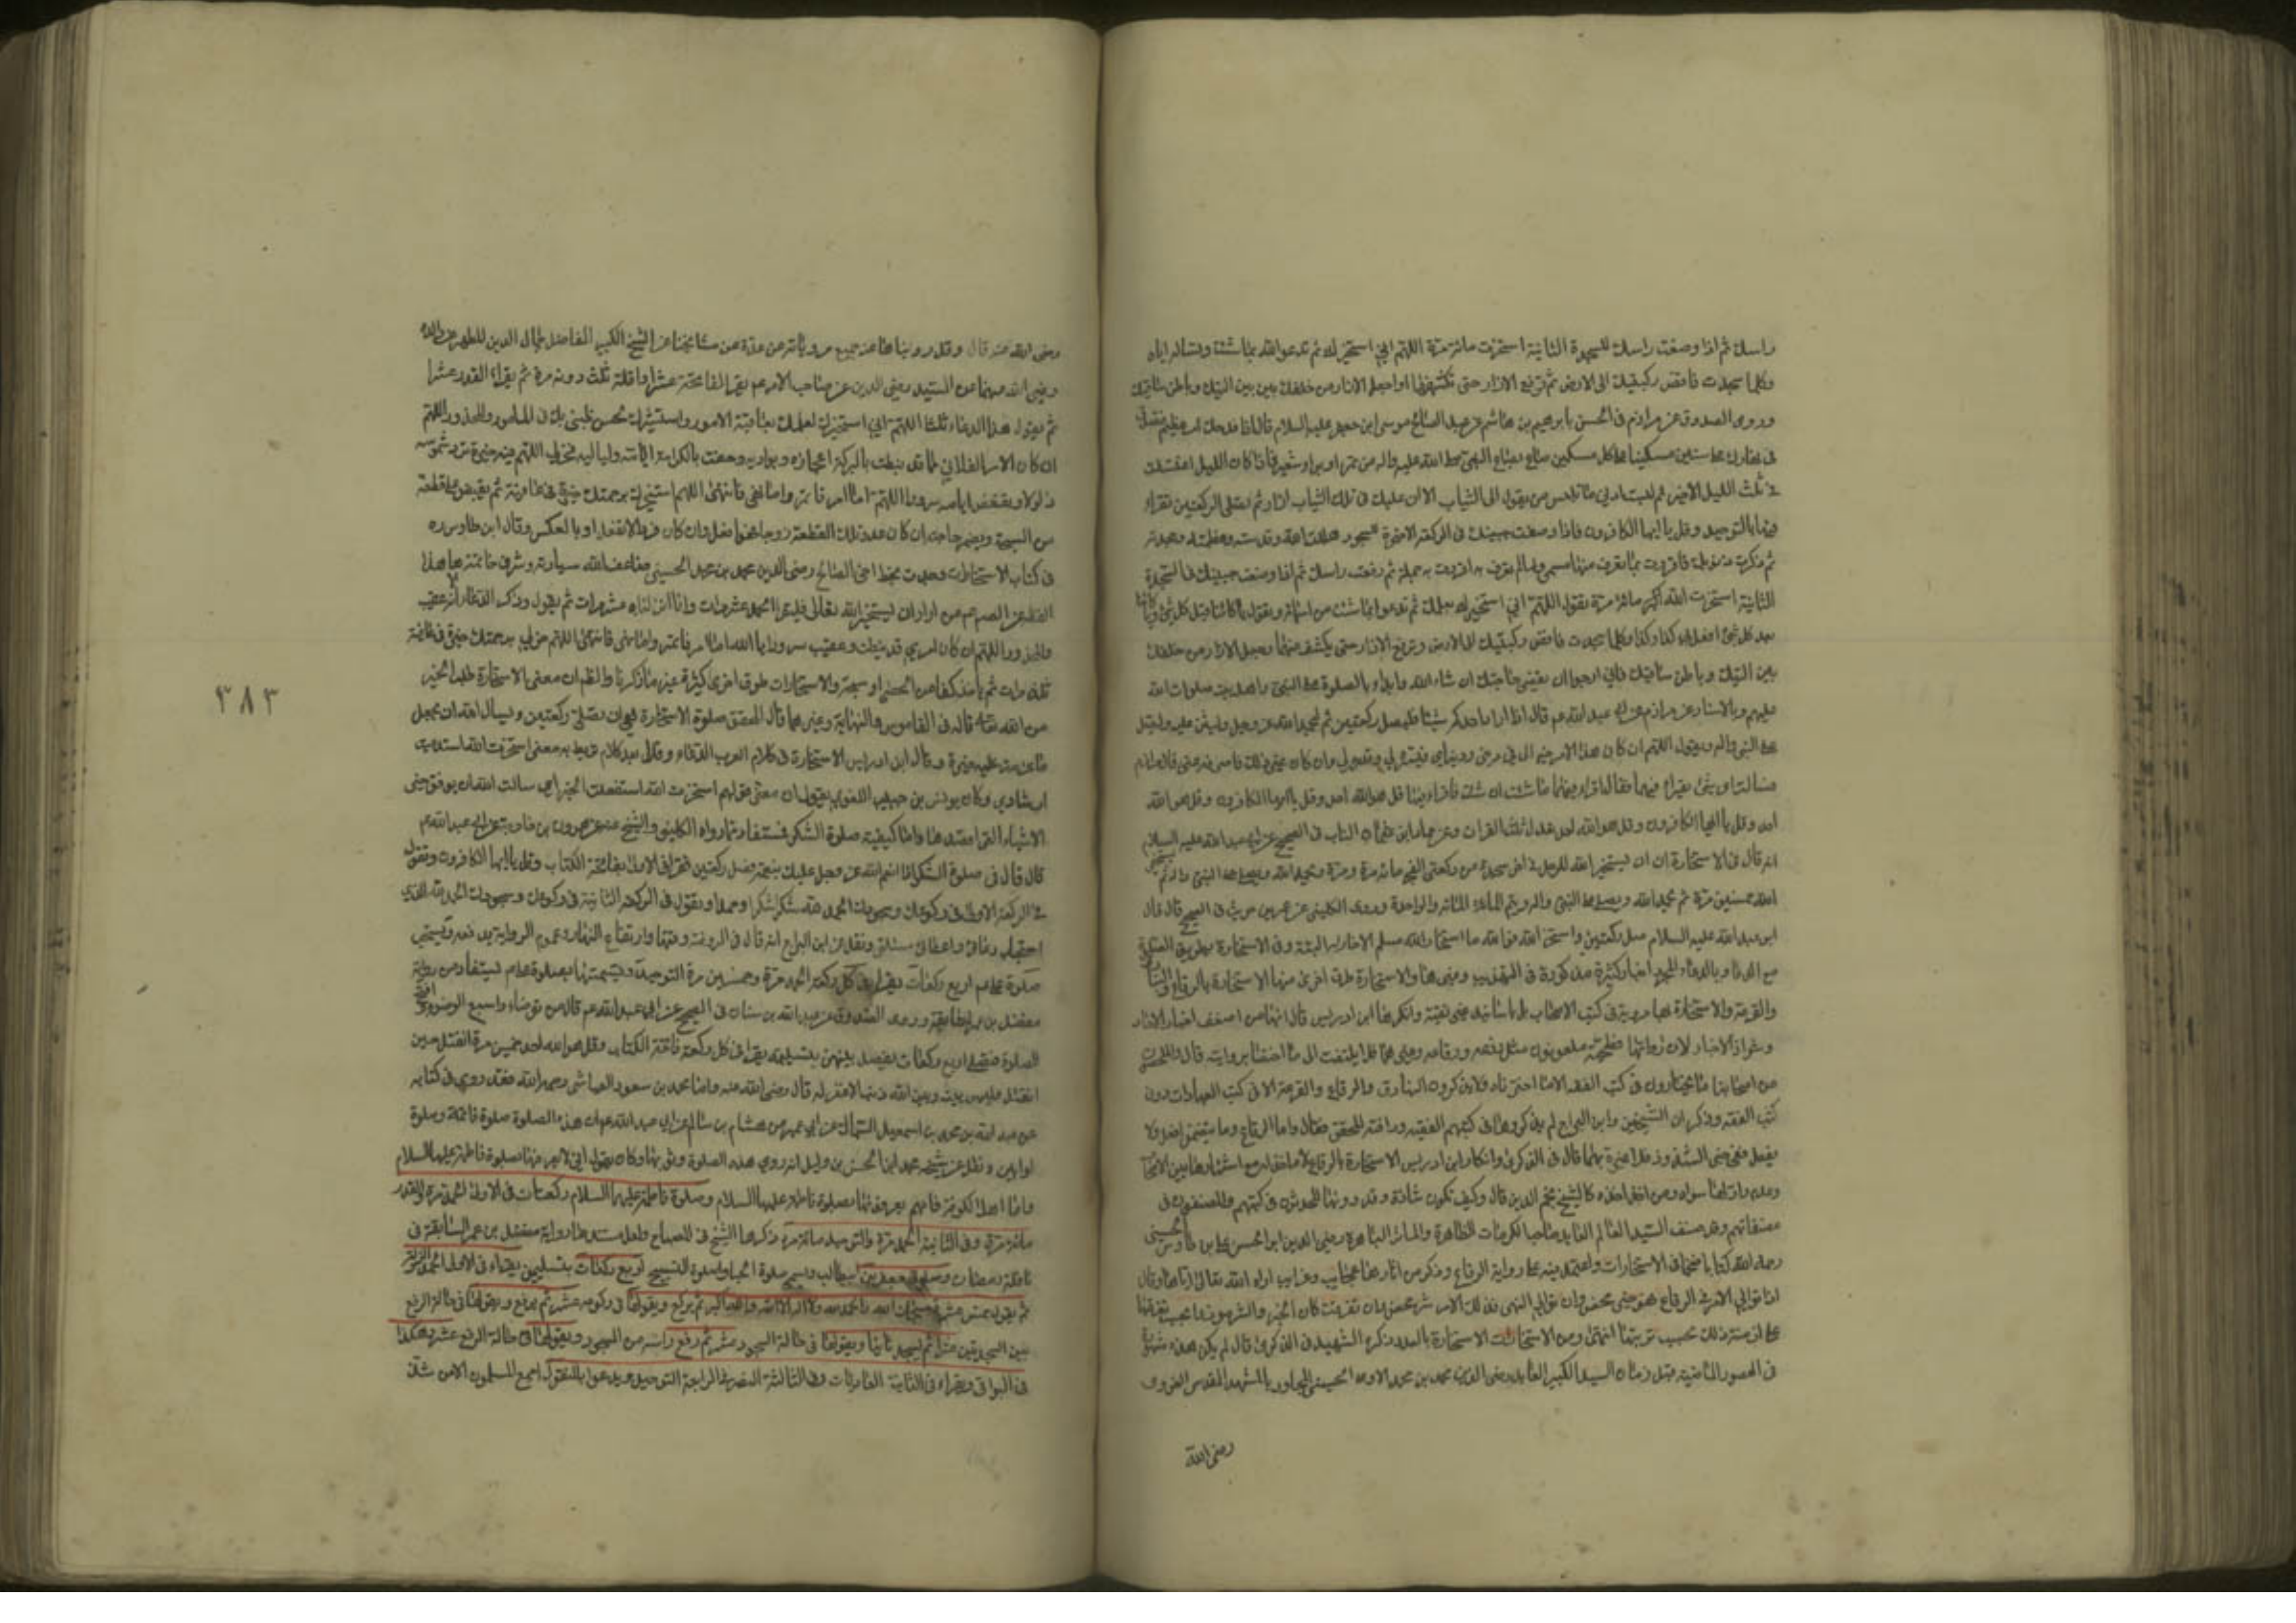 راسك ثم اذا وضعت راسك للسجدة الثانية استخرت مائة مرة اللهم اني استخيرك ثم تدعو الله بما شئت وتساله اياه
وكلما سجدت فافض ركبتيك الى الارض ثم ترفع الازار حتى تكشفهما واجعل الازار من خلفك بين اليتيك وباطن ساقيك
وروى الصدوق عن مرازم في الحسن بابرهيم بن هاشم عن عبد الصالح موسى ابن جعفر عليه السلام قال اذا فدحك امر عظيم فتصدق
في نهارك على ستين مسكينا على كل مسكين صاع بصاع النبي صلى الله عليه واله من تمر او بر او شعير فاذا كان الليل اغتسلت
في ثلث الليل الاخير ثم لبست ادنى ما تلبس من يعول من الثياب الا ان عليك في تلك الثياب ازار ثم تصلى الركعتين تقراء
فيهما بالتوحيد وقل يا ايها الكافرون فاذا وضعت جبينك في الركعة الاخيرة للسجود هللت الله وقدسته وعظمته ومجدته
ثم ذكرت ذنوبك فاقررت بما تعرف منها مسمى وما لم تعرف به اقررت به جملة ثم رفعت راسك ثم اذا وضعت جبينك في السجدة
الثانية استخرت الله مائة مرة تقول اللهم اني استخيرك بعلمك ثم تدعو الله بما شئت من اسمائه وتقول يا كائنا قبل كل شئ ويا كائنا
بعد كل شئ افعل بي كذا وكذا وكلما سجدت فافض ركبتيك الى الارض وترفع الازار حتى تكشف عنهما واجعل الازار من خلفك
بين اليتيك وباطن ساقيك فاني ارجو ان تقضى حاجتك ان شاء الله وابداء بالصلوة على النبي واهل بيته صلوات الله
عليهم وبالاسناد عن مرازم عن ابي عبد الله عم قال اذا اراد احدكم شيئا فليصل ركعتين ثم ليحمد الله عز وجل وليثن عليه وليصل
على النبي واله ويقول اللهم ان كان هذا الامر خيرا لي في ديني ودنياي فيسره لي وقدره لي وان كان غير ذلك فاصرفه عني قال مرازم
فسالته اي شئ يقراء فيهما فقال اقراء فيهما ما شئت ان شئت فاقراء فيهما قل هو الله احد وقل يا ايها الكافرون وقل هو الله
احد وقل يا ايها الكافرون وقل هو الله احد تعدل ثلث القران وعن حماد ابن عثمان الناب في الصحيح عن ابي عبد الله عليه السلام
انه قال في الاستخارة ان يستخير الله الرجل في اخر سجدة من ركعتي الفجر مائة مرة ومرة ويحمد الله ويصلى على النبي واله ثم يستخير
الله خمسين مرة ثم يحمد الله ويصلى على النبي واله ويتم المائة والواحدة وروى الكليني عن عمرو بن حريث في الصحيح قال قال
ابو عبد الله عليه السلام صل ركعتين واستخر الله فوالله ما استخار الله مسلم الا خار له البتة وفي الاستخارة بطريق الصلوة
مع الدعاء وبالدعاء المجرد اخبار كثيرة مذكورة في التهذيب وغيره هنا وللاستخارة طرق اخرى منها الاستخارة بالرقاع والبنادق
والقرعة والاستخارة بها مروية في كتب الاصحاب بل باسانيد غير نقية وانكرها ابن ادريس قال انها من اضعف اخبار الاحاد
وشواذ الاخبار لان رواتها فطحية ملعونون مثل زرعة ورفاعة وغيرهما فلا يلتفت الى ما اختصا بروايته قال والمحصلون
من اصحابنا ما يختارون في كتب الفقه الا ما اخترناه ولا يذكرون البنادق والرقاع والقرعة الا في كتب العبادات دون
كتب الفقه وذكر ان الشيخين وابن البراج لم يذكروها في كتبهم الفقهية ووافقه المحقق فقال واما الرقاع وما يتضمن افعل ولا
تفعل ففي حيز الشذوذ فلا عبرة بهما قال في الذكرى وانكار ابن ادريس الاستخارة بالرقاع لا ماخذ له مع اشتهارها بين الاصحاب
وعدم راد لها سواه ومن اخذ اخذه كالشيخ نجم الدين قال وكيف تكون شاذة وقد دونها المحدثون في كتبهم والمصنفون في
مصنفاتهم وقد صنف السيد العالم العابد صاحب الكرامات الظاهرة والمآثر الباهرة رضي الدين ابو الحسن علي بن طاوس الحسيني
رحمه الله كتابا ضخما في الاستخارات واعتمد فيه على رواية الرقاع وذكر من اثارها عجايب وغرايب اراه الله تعالى اياها وقال
اذا توالى الامر في الرقاع فهو خير محض وان توالى النهى فذلك الامر شر محض وان تفرقت كان الخير والشر موزعا بحسب تفرقها
على ازمنة ذلك بحسب ترتبها انتهى ومن الاستخارات الاستخارة بالعدد ذكره الشهيد في الذكرى قال لم يكن هذه مشهورة
في العصور الماضية قبل زمان السيد الكبير العابد رضى الدين محمد بن محمد الاوي الحسيني المجاور بالمشهد المقدس الغروى
رضى الله
رضى الله عنه قال وقد رويناها عنه جميع مروياته عن عدة من مشايخنا عن الشيخ الكبير الفاضل جمال الدين المطهر عن والده
رضى الله عنهما عن السيد رضى الدين عن صاحب الامر عم يقرا الفاتحة عشرا واقله ثلث ودونه مرة ثم يقراء القدر عشرا
ثم يقول هذا الدعاء ثلثا اللهم اني استخيرك لعلمك بعاقبة الامور واستشيرك لحسن ظني بك في المامول والمحذور اللهم
ان كان الامر الفلاني مما قد نيطت بالبركة اعجازه وبواديه وحفت بالكرامة ايامه ولياليه فخر لي اللهم فيه خيرة ترد شموسه
ذلولا وتقعض ايامه سرورا اللهم اما امر فائتمر واما نهى فانتهى اللهم اني استخيرك برحمتك خيرة في عافية ثم يقبض على قطعة
من السبحة ويضمر حاجته ان كان عدد تلك القطعة زوجا فهو افعل وان كان فردا لا تفعل او بالعكس وقال ابن طاوس ره
في كتاب الاستخارات وجدت بخط اخى الصالح رضى الدين محمد بن محمد الحسيني ضاعف الله سيادته وشرف خاتمته ما هذا
لفظه عن الصادق عم من اراد ان يستخير الله تعالى فليقرا الحمد عشر مرات وانا انزلناه عشر مرات ثم يقول وذكر الدعاء الا انه عقيب
والمحذور اللهم ان كان امري قد نيطت وعقيب سرورا يا الله اما امر فائتمر واما نهى فانتهى اللهم خر لي برحمتك خيرة في عافية
ثلث مرات ثم ياخذ كفا من الحصى او سبحة وللاستخارات طرق اخرى كثيرة غير ما ذكرنا والظم ان معنى الاستخارة طلب الخير
من الله تعالى قاله في القاموس والنهاية وغيرهما قال المحقق صلوة الاستخارة هي ان تصلى ركعتين ويسال الله ان يجعل
ما عزمت عليه خيرة وقال ابن ادريس الاستخارة في كلام العرب الدعاء وقال بعد كلام توسط به معنى استخرت الله استدعيت
ارشادي وكان يونس بن حبيب اللغوي يقول ان معنى قولهم استخرت الله استفعلت الخير اي سالت الله ان يوفق خير
الاشياء التي اقصدها واما كيفية صلوة الشكر فتستفاد مما رواه الكليني والشيخ عنه عن هرون بن خارجة عن ابي عبد الله عم
قال قال في صلوة الشكر اذا انعم الله عز وجل عليك بنعمة فصل ركعتين تقرا في الاولى بفاتحة الكتاب وقل يا ايها الكافرون وتقول
في الركعة الاولى في ركوعك وسجودك الحمد لله شكرا شكرا وحمدا وتقول في الركعة الثانية في ركوعك وسجودك الحمد لله الذي
استجاب دعائي واعطاني مسئلتي ونقل عن ابن البراج انه قال في الروضة وقتها ارتفاع النهار وعموم الرواية يدفعه ويستحب
صلوة علي عم اربع ركعات يقراء في كل ركعة الحمد مرة وخمسين مرة التوحيد وتسميتها بصلوة علي عم يستفاد من رواية
مفضل بن عمر السابقة وروى الصدوق عن عبد الله بن سنان في الصحيح عن ابي عبد الله عم قال من توضاء واسبغ الوضوء وافتتح
الصلوة فصلى اربع ركعات يفصل بينهن بتسليمة يقراء في كل ركعة فاتحة الكتاب وقل هو الله احد خمسين مرة انفتل حين
انفتل وليس بينه وبين الله ذنب الا غفر له قال رضى الله عنه واما محمد بن مسعود العياشي رحمه الله فقد روى في كتابه
عن عبد الله بن محمد عن محمد بن اسمعيل السماك عن ابن ابي عمير عن هشام بن سالم عن ابي عبد الله عم ان هذه الصلوة صلوة فاطمة وصلوة
اوابين ونقل عن شيخه محمد ابن الحسن بن وليد انه روى هذه الصلوة وثوابها وكان يقول اني لا اعرفها بصلوة فاطمة عليها السلام
واما اهل الكوفة فانهم يعرفونها بصلوة فاطمة عليها السلام وصلوة فاطمة عليها السلام ركعتان في الاولى الحمد مرة والقدر
مائة مرة وفي الثانية الحمد مرة والتوحيد مائة مرة ذكرها الشيخ في المصباح ولعل مستندها رواية مفضل بن عمر السابقة في
نافلة رمضان وصلوة جعفر بن ابيطالب وتسمى صلوة الحبوة وصلوة التسبيح اربع ركعات بتسليمين يقراء في الاولى الحمد والزلزلة
ثم يقول خمس عشرة سبحان الله والحمد لله ولا اله الا الله والله اكبر ثم يركع ويقولها في ركوعه عشرا ثم يرفع ويقولها في حالة الرفع
بين السجدتين عشرا ثم يسجد ثانيا ويقولها في حالة السجود عشرا ثم رفع راسه من السجود ويقولها في حالة الرفع عشرا وهكذا
في البواقي ويقراء في الثانية العاديات وفي الثالثة النصر وفي الرابعة التوحيد ويدعو بالمنقول اجمع المسلمون الا من شذ
٣٨٣